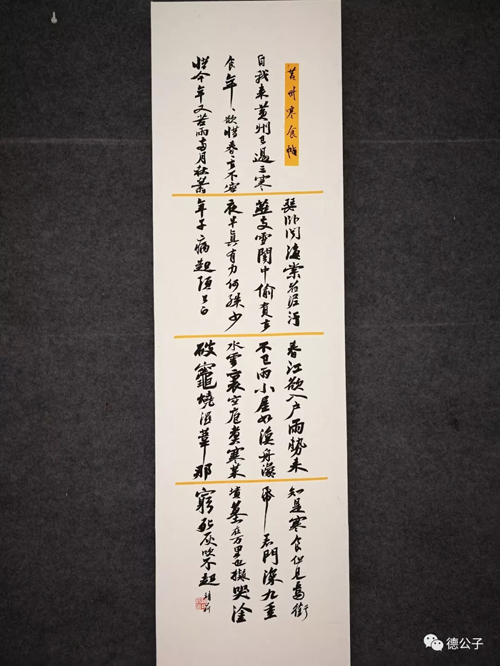 黄州寒食帖
自我来黄州已過三寒
食年、欲惜春去不容
惜今年又苦雨两月秋萧
瑟卧闻海棠花泥汙
燕支雪闇中偷负去
夜半真有力何殊少
年子病起頭已白
春江欲入户雨勢来
不已雨小屋如漁舟濛
水雲裏空庖煮寒菜
破竈燒湿葦那
知是寒食但見烏銜
帋君門深九重
墳墓在万里也擬哭塗
窮死灰吹不起
德公子